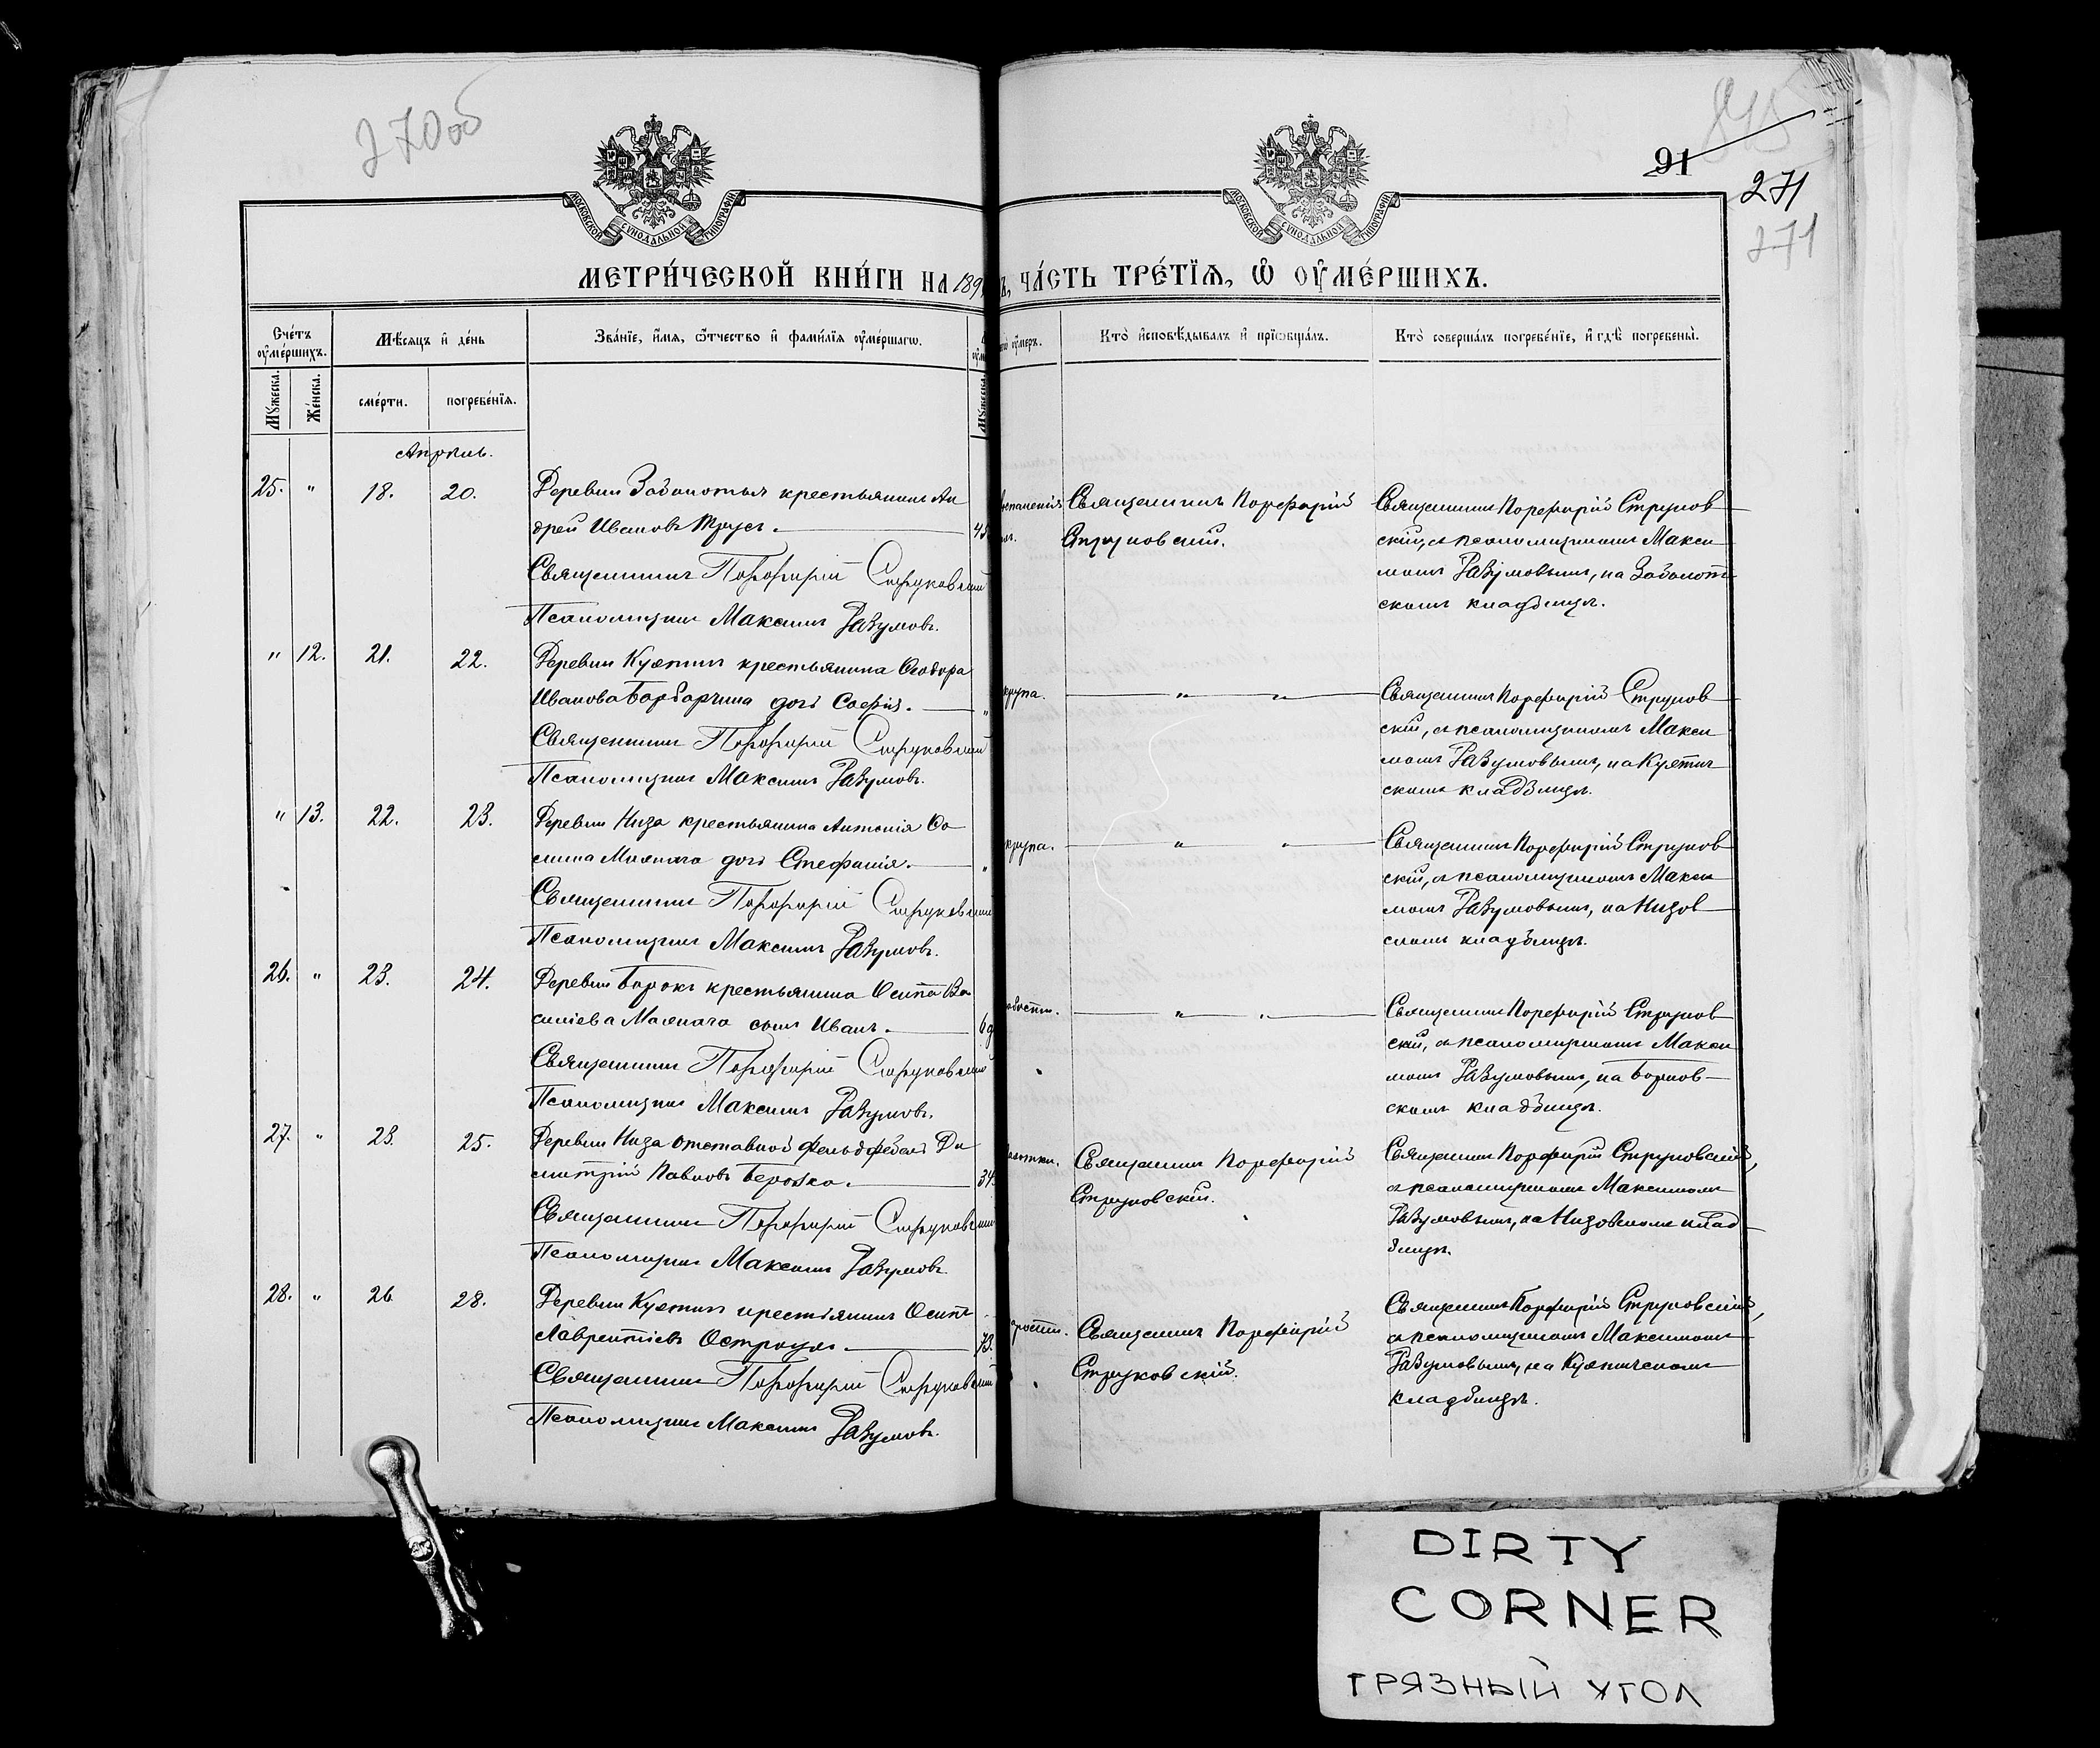 270об
МОСКОВСКОЙ СУНОДАЛЬНОЙ ТИПОГРАФІИ
МОСКОВСКОЙ СУНОДАЛЬНОЙ ТИПОГРАФІИ
91
271
271
МЕТРИ́ЧЕСКОЙ КНИ́ГИ НА 189
Ъ, ЧА́СТЬ ТРЕ́ТЇѦ, Ѽ ОУ҆МЕ́РШИХЪ.
Сче́тъ оу҆ме́ршихъ.
Мѣ́сяцъ и҆ де́нь
Зва́нїе, и҆́мя, ѻ҆́тчество и҆ фами́лїя оу҆ме́ршагѡ.
оу҆́меръ.
Кто̀ и҆сповѣ́дывалъ и҆ прїѡбща́лъ.
Кто̀ соверша́лъ погребе́нїе, и҆ гдѣ̀ погребены̀.
Мꙋ́жеска.
Же́нска.
сме́рти.
погребе́нїя.
Мꙋ́жеска.
Апрѣль.
25. " 18. 20. Деревни Заболотья крестьянинъ Ан
дрей Ивановъ Трусъ. 45
Священникъ Порфирій Струковскій
Псаломщикъ Максимъ Разумовъ.
Священникъ Порфирій
Струковскій.
Священникъ Порфирій Струков
скій, съ псаломщикомъ Макси
момъ Разумовымъ, на Заболот
скомъ кладбищѣ.
" 12. 21. 22. Деревни Куятичъ крестьянина Ѳеодора
Иванова Барбарчика дочь Софія. "
Священникъ Порфирій Струковскій
Псаломщикъ Максимъ Разумовъ.
крупа. " "
Священникъ Порфирій Струков
скій, съ псаломщикомъ Макси
момъ Разумовымъ, на Куятич
скомъ кладбищѣ.
" 13. 22. 23. Деревни Низа крестьянина Антонія Со
дочь Стефанія. "
Священникъ Порфирій Струковскій
Псаломщикъ Максимъ Разумовъ.
крупа. " "
Священникъ Порфирій Струков
скій, съ псаломщикомъ Макси
момъ Разумовымъ, на Низов
скомъ кладбищѣ.
26. " 23. 24. Деревни Борокъ крестьянина Осипа Ва
силіева сынъ Иванъ. 6 д
Священникъ Порфирій Струковскій
Псаломщикъ Максимъ Разумовъ.
" "
Священникъ Порфирій Струков
скій, съ псаломщикомъ Макси
момъ Разумовымъ, на Борков
скомъ кладбищѣ.
27. " 23. 25. Деревни Низа отставной фельдфебель Ди
митрій Павловъ Берозко. 34
Священникъ Порфирій Струковскій
Псаломщикъ Максимъ Разумовъ.
Священникъ Порфирій
Струковскій.
Священникъ Порфирій Струковскій,
съ псаломщикомъ Максимомъ
Разумовымъ, на Низовскомъ клад
бищѣ.
28. " 26 28. Деревни Куятичъ крестьянинъ Осипъ
Лаврентіевъ Остроухъ. 73.
Священникъ Порфирій Струковскій
Псаломщикъ Максимъ Разумовъ.
Священникъ Порфирій
Струковскій.
Священникъ Порфирій Струковскій,
съ псаломщикомъ Максимомъ
Разумовымъ, на Куятичскомъ
кладбищѣ.
DIRTY
CORNER
ГРЯЗНЫЙ УГОЛ